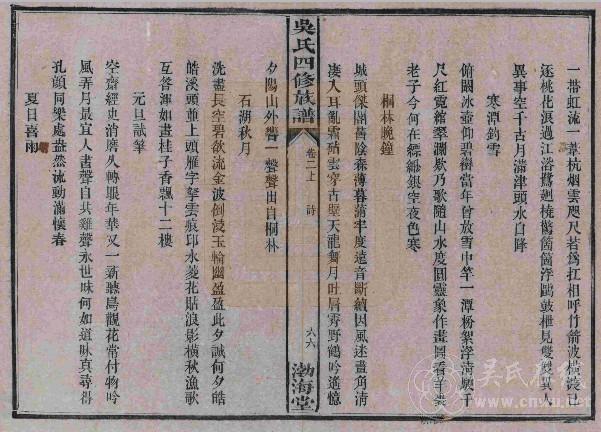 一帶虹流一葦杭烟雲咫尺若為杠相呼竹箭波橫渡已
逐桃花浪過江浴鷺迥橈驚箇箇浮鷗鼓枻見雙雙其人
異事空千古月滿津頭水自降
寒潭釣雪
俯闞冰壺仰碧當年曾放雪中竿一潭粉絮浮清興千
尺紅霓綰翠瀾欵乃歌隨山水度圓靈象作畫圖看羊裘
老子今何在縹緲銀空夜色寒
桐林晚鐘
城頭傑閣舊陰森薄暮蒲牢度遠音斷續因風迷畫角清
凄入耳亂霜砧雲穿古壁天龍舞月吐層霄野鶴吟遙憶
吳氏四修族譜
卷二上
詩
六六
渤海堂
夕陽山外響一聲聲出自桐林
石湖秋月
洗盡長空碧欲流金波倒浸玉輪幽盈盈此夕誠何夕皓
皓溪頭並上頭雁字擎雲痕印水菱花貼浪影橫秋漁歌
互答渾如畫桂子香飄十二樓
元旦試筆
空齋經史消磨久轉眼年華又一新聽鳥觀花常付物吟
風弄月最宜人書聲自共雞聲永世味何如道味真尋得
孔顏同樂處盎然流動滿懷春
夏日喜雨
吳氏
www.cnwu.net